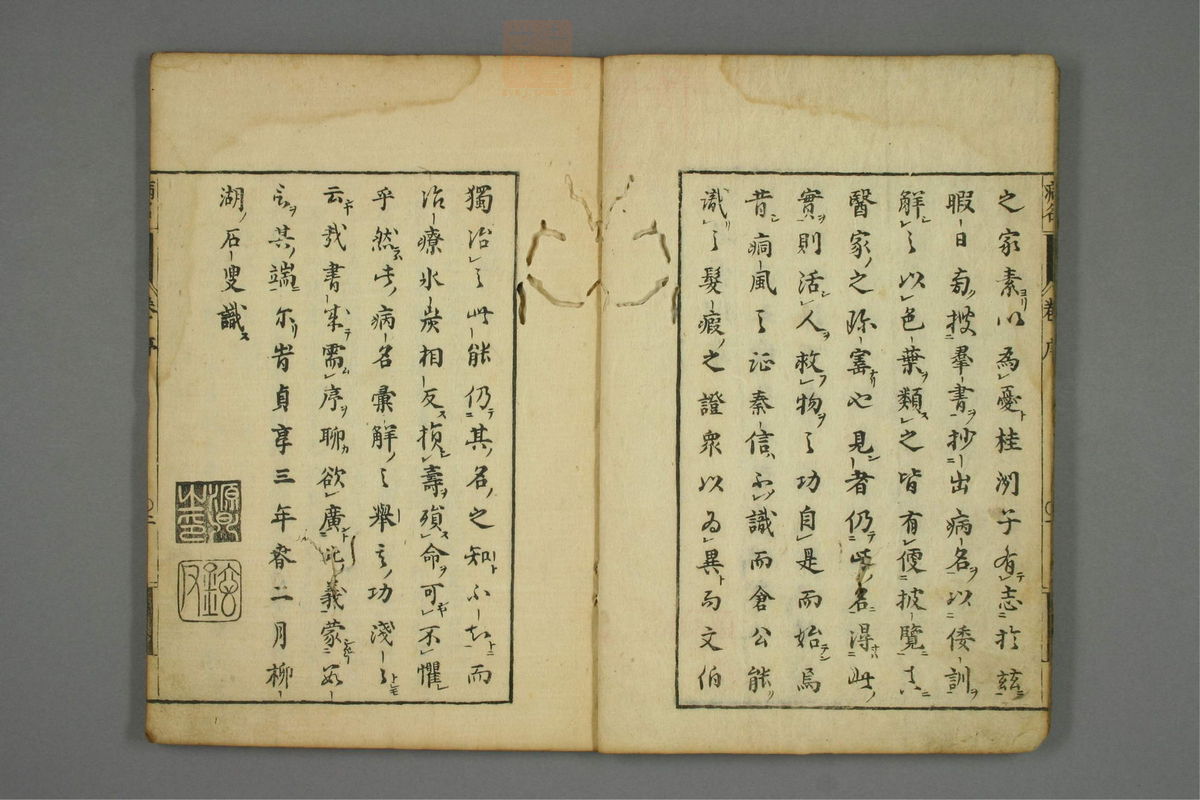 之家素以為憂桂洲子有志於茲
暇日旁捜羣書抄出病名以倭訓
解之以色葉類之皆有便披覽真
醫家之珎寚也見者仍此名得此
實則活人救物之功自是而始焉
昔病風之証秦信不識而倉公能
識之髮瘕之證衆以為異而文伯
獨治之此能仍其名之知不知而
治療氷炭相反損壽殞命可不懼
乎然此病名彙解之舉其功淺〻
云哉書成需序聊欲廣此義蒙
言其端尓旹貞享三年春二月柳
湖石叟識